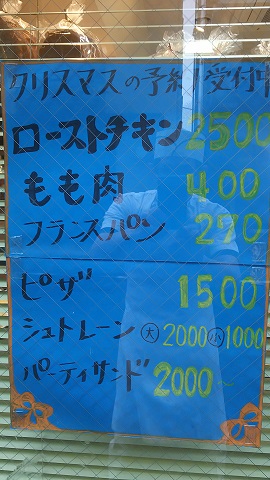 クリスマスの予約受付中
ローストチキン 2500
もも肉 400
フランスパン 270
ピザ 1500
シュトレーン 大 2000 小 1000
パーティサンド 2000~